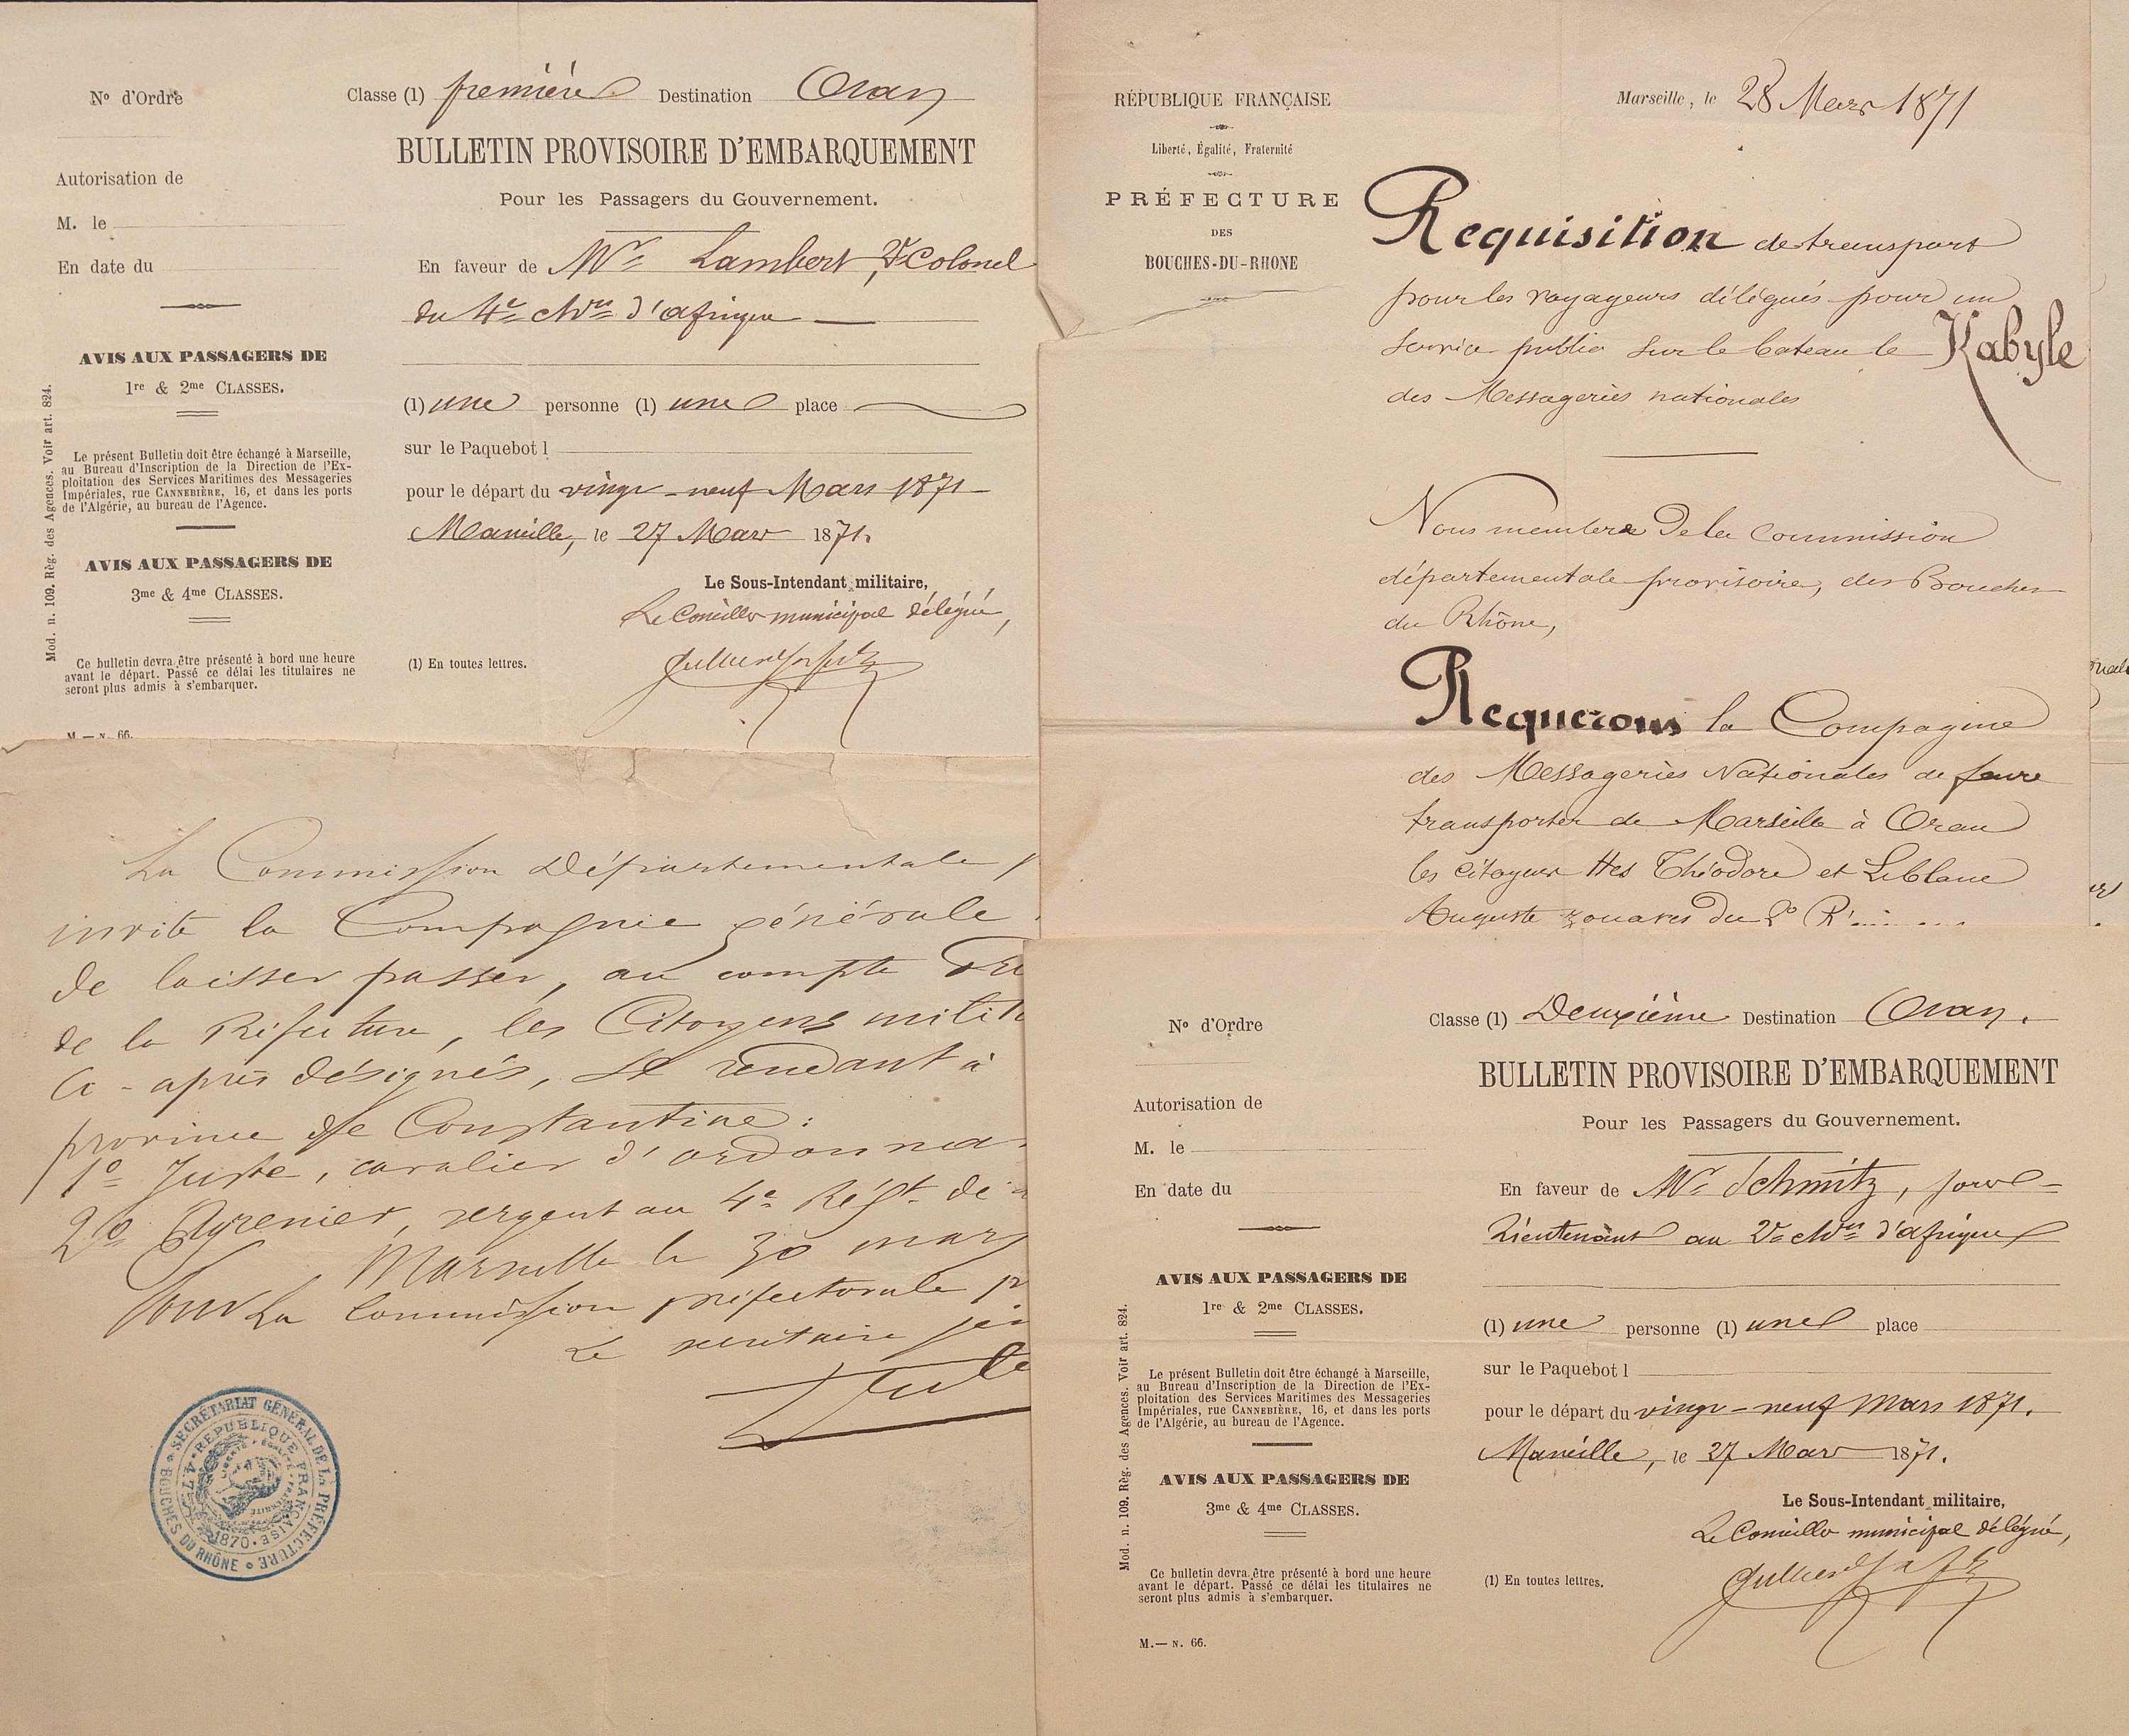 Nº d'Ordre
Classe (1) première Destination Oran
BULLETIN PROVISOIRE D'EMBARQUEMENT
Pour les Passagers du Gouvernement.
Autorisation de
M. le
En date du
En faveur de Mr Lambert, Lt Colonel
du 4e d'afrique
AVIS AUX PASSAGERS DE
1re & 2me CLASSES.
Le présent Bulletin doit être échangé à Marseille,
au Bureau d'Inscription de la Direction de l'Ex-
ploitation des Services Maritimes des Messageries
Impériales, rue CANNEBIÈRE, 16, et dans les ports
de l'Algérie, au bureau de l'Agence.
AVIS AUX PASSAGERS DE
3me & 4me CLASSES.
Ce bulletin devra être présenté à bord une heure
avant le départ. Passé ce délai les titulaires ne
seront plus admis à s'embarquer.
M — N. 66.
Mod. n. 109. Règ. des Agences. Voir art. 824.
(1) une personne (1) une place
sur le Paquebot l
pour le départ du vingt-neuf Mars 1871
Marseille, le 27 Mars 1871.
Le Sous-Intendant militaire,
Le Conseiller municipal délégué,
(1) En toutes lettres.
RÉPUBLIQUE FRANÇAISE
Liberté, Égalité, Fraternité
PRÉFECTURE
DES
BOUCHES-DU-RHONE
Marseille, le 28 Mars 1871
Requisition de transport
pour les voyageurs délégués pour un
service public sur le bateau le Kabyle
des Messageries nationales
Nous membres de la Commission
départementale provisoire, des Bouches
du Rhône,
Requerons la Compagnie
des Messageries Nationales de faire
transporter de Marseille à Oran
les citoyens Théodore et Leblanc
Auguste zouaves du 2e
La Commission Départementale
invite la Compagnie générale
de laisser passer, au compte
de la Préfecture, les Citoyens
ci-après désignés, se rendant à
province de Constantine :
1º Juste, cavalier d'ordonna
2º Agrenier, sergent au 4e Régt. de
Marseille le 30 mars
Pour La Commission préfectorale
Le secrétaire
SECRÉTARIAT GÉNÉRAL DE LA PRÉFECTURE
BOUCHES DU RHÔNE
RÉPUBLIQUE FRANÇAISE
LIBERTÉ ÉGALITÉ FRATERNITÉ
4 7BRE 1870
Nº d'Ordre
Classe (1) Deuxième Destination Oran.
BULLETIN PROVISOIRE D'EMBARQUEMENT
Pour les Passagers du Gouvernement.
Autorisation de
M. le
En date du
En faveur de Mr Schmitz, sous
Lieutenant au 2e d'afrique
AVIS AUX PASSAGERS DE
1re & 2me CLASSES.
Le présent Bulletin doit être échangé à Marseille,
au Bureau d'Inscription de la Direction de l'Ex-
ploitation des Services Maritimes des Messageries
Impériales, rue CANNEBIÈRE, 16, et dans les ports
de l'Algérie, au bureau de l'Agence.
AVIS AUX PASSAGERS DE
3me & 4me CLASSES.
Ce bulletin devra être présenté à bord une heure
avant le départ. Passé ce délai les titulaires ne
seront plus admis à s'embarquer.
M.— N. 66.
Mod. n. 109. Règ. des Agences. Voir art. 824.
(1) une personne (1) une place
sur le Paquebot l
pour le départ du vingt-neuf Mars 1871.
Marseille, le 27 Mars 1871.
Le Sous-Intendant militaire,
Le Conseiller municipal délégué,
(1) En toutes lettres.